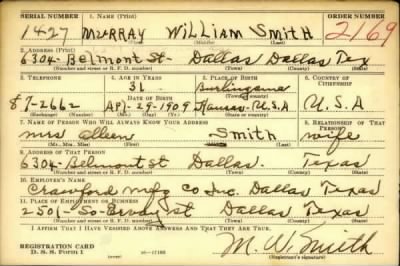 SERIAL NUMBER 1. NAME (Print) ORDER NUMBER
1427 MURRAY WILLIAM SMITH 2169
(First) (Middle) (Last)
2. ADDRESS (Print)
6304- Belmont St- Dallas Dallas Tex
(Number and street or R. F. D. number) (Town) (County) (State)
3. TELEPHONE 4. AGE IN YEARS 5. PLACE OF BIRTH 6. COUNTRY OF CITIZENSHIP
31 Burlingame
87-2662 Apl-29-1909 Kansas-U.S.A U.S.A
(Exchange) (Number) (Mo.) (Day) (Yr.) (State or country)
7. NAME OF PERSON WHO WILL ALWAYS KNOW YOUR ADDRESS 8. RELATIONSHIP OF THAT PERSON
Mrs Smith wife
(Mr., Mrs., Miss) (First) (Middle) (Last)
9. ADDRESS OF THAT PERSON
6304 Belmont St Dallas. Texas
(Number and street or R. F. D. number) (Town) (County) (State)
10. EMPLOYER'S NAME
Crawford Mfg Co Inc. Dallas Texas
11. PLACE OF EMPLOYMENT OR BUSINESS
2501-So-Ervay st Dallas Texas
(Number and street or R. F. D. number) (Town) (County) (State)
I AFFIRM THAT I HAVE VERIFIED ABOVE ANSWERS AND THAT THEY ARE TRUE.
REGISTRATION CARD
D. S. S. Form 1
M. W. Smith
(Registrant's signature)